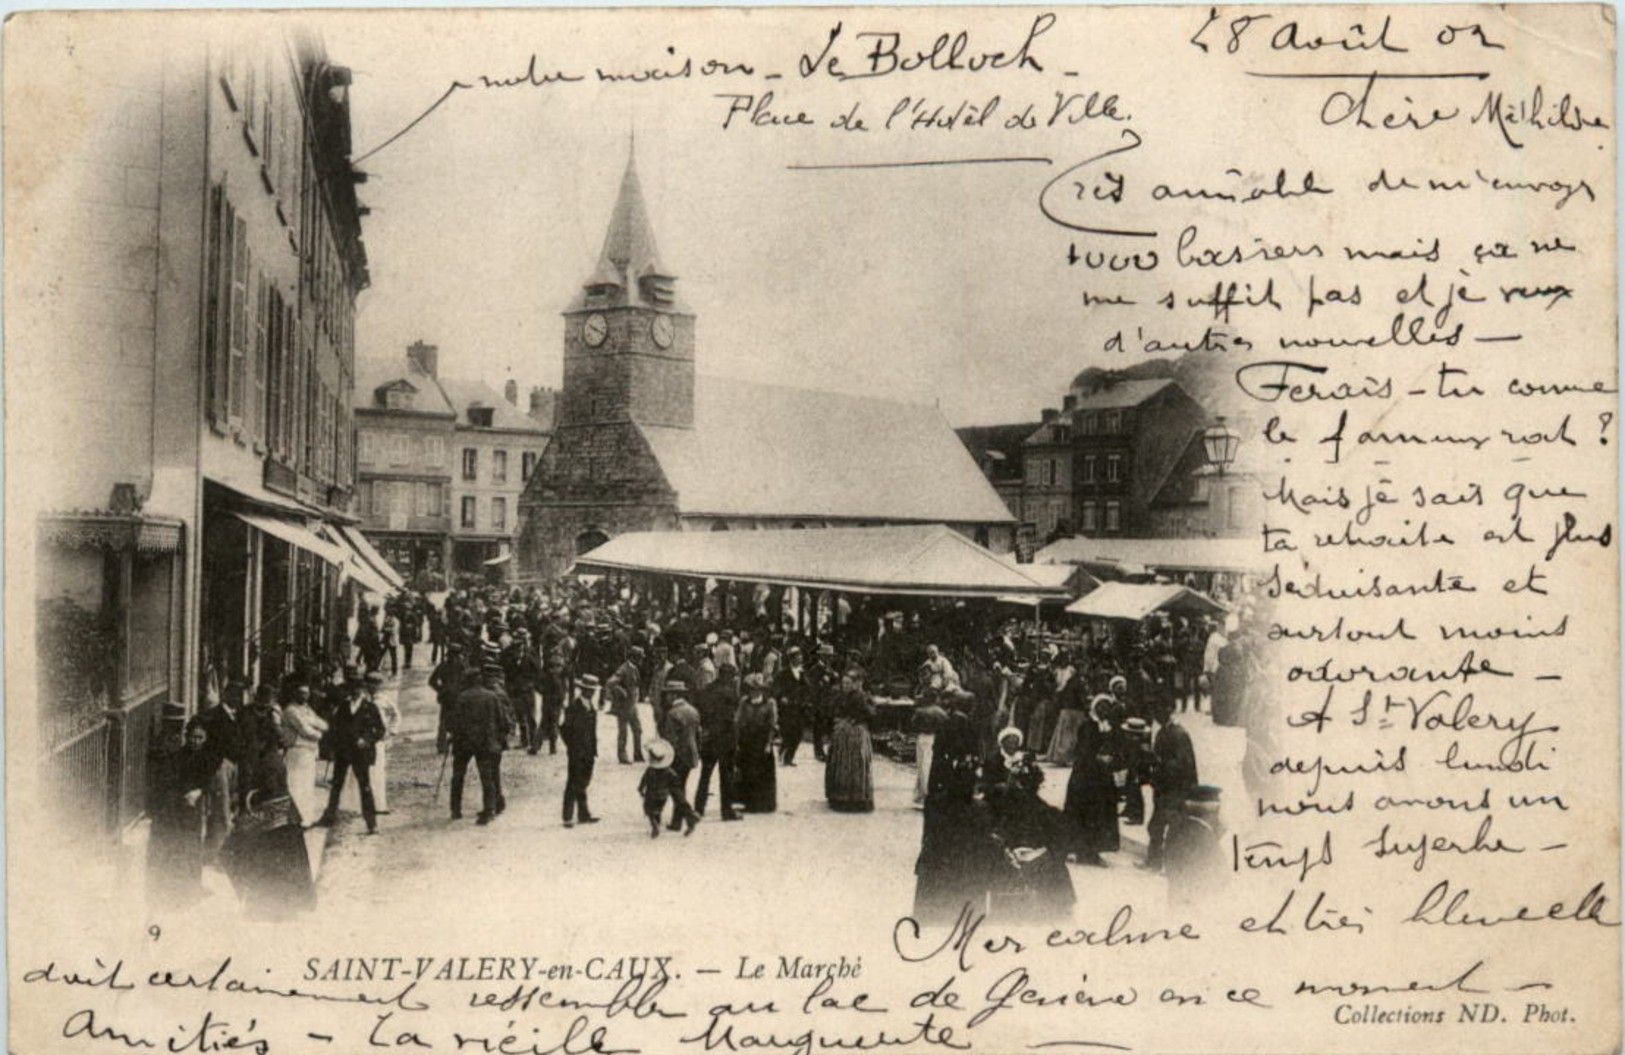 notre maison - Le Bolloch -
Place de l'Hotel de Ville.
28 Août 02
Chère Mathilde
Très aimable de m'envoyer
1000 baisers mais ça ne
me suffit pas et je veux
d'autres nouvelles —
Ferais-tu comme
le fameux rat ?
Mais je sais que
ta retraite est plus
séduisante et
surtout moins
odorante —
A St Valery
depuis lundi
nous avons un
temps superbe —
Mer calme et très bleue elle
doit certainement ressembler au lac de Genève en ce moment —
Amitiés - Ta vieille Marguerite —
9
SAINT-VALERY-en-CAUX. — Le Marché
Collections ND. Phot.